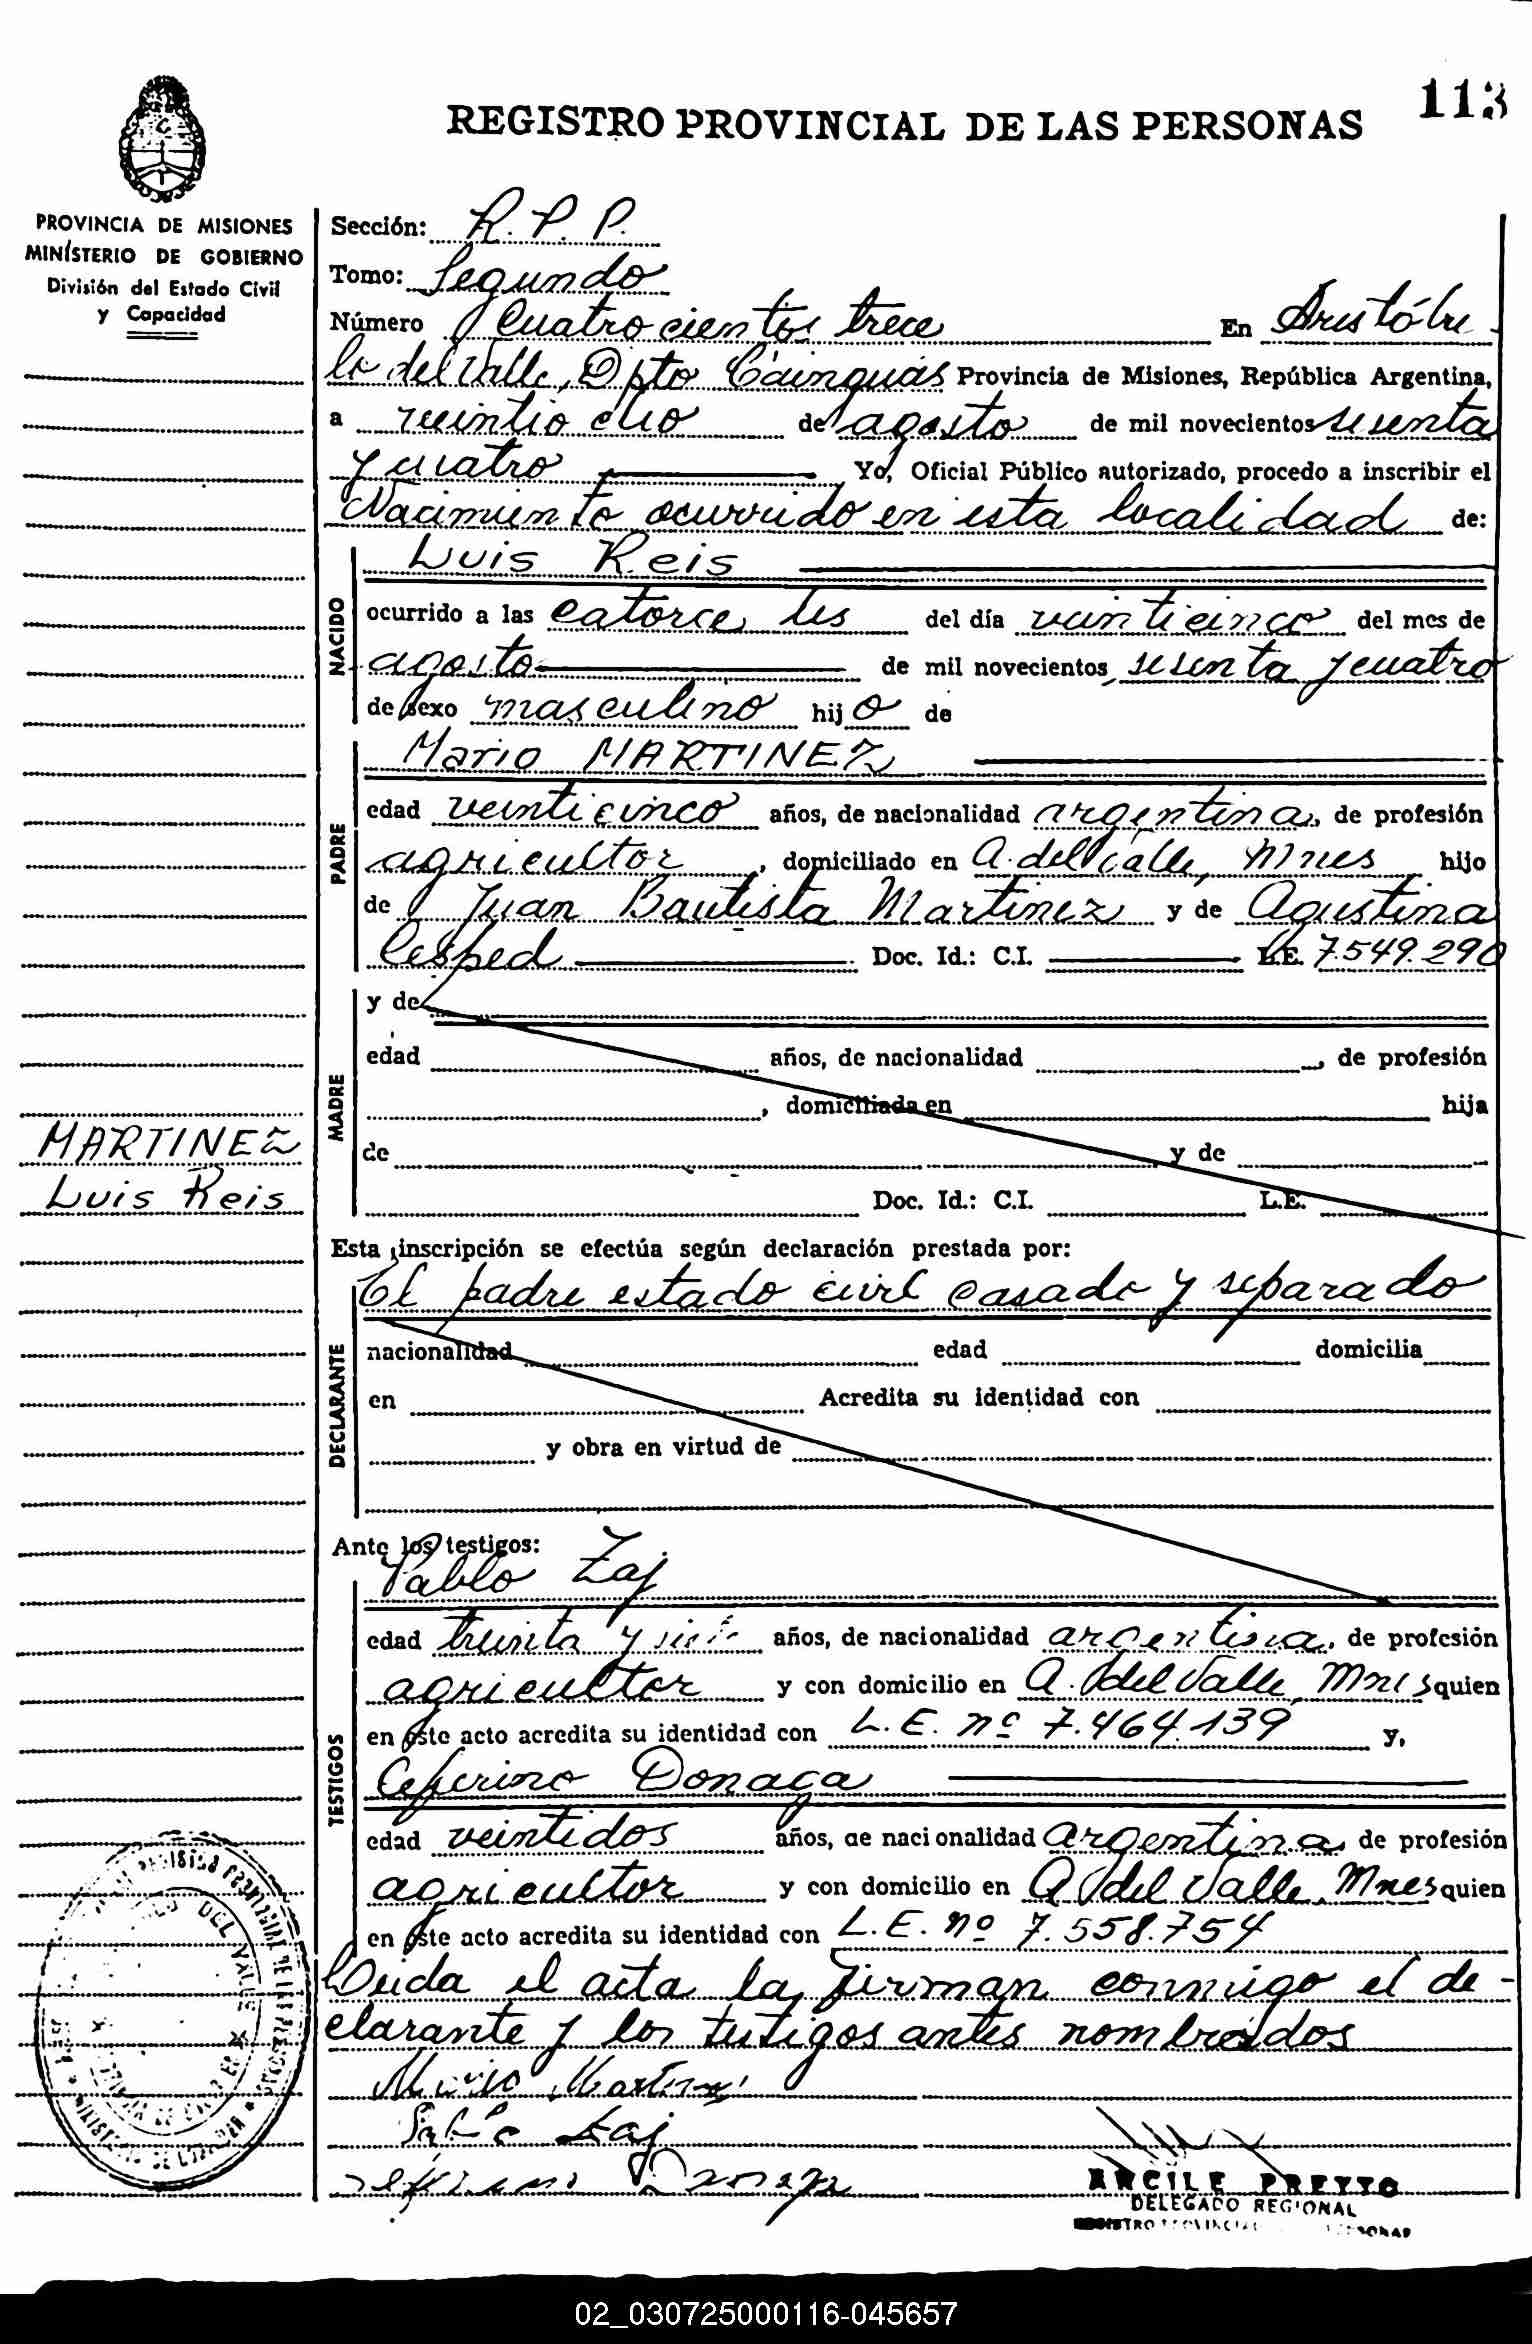 113
REGISTRO PROVINCIAL DE LAS PERSONAS
PROVINCIA DE MISIONES
MINISTERIO DE GOBIERNO
División del Estado Civil
y Capacidad
Sección: R. P. P.
Tomo: Segundo
Número Cuatrocientos trece En Aristóbu-
lo del Valle, Dpto Cainguás Provincia de Misiones, República Argentina,
a veintiocho de agosto de mil novecientos sesenta
y cuatro Yo, Oficial Público autorizado, procedo a inscribir el
Nacimiento ocurrido en esta localidad de:
NACIDO
Luis Reis
ocurrido a las catorce hs del día veinticinco del mes de
agosto de mil novecientos sesenta y cuatro
de sexo masculino hijo de
PADRE
Mario MARTINEZ
edad veinticinco años, de nacionalidad argentina, de profesión
agricultor, domiciliado en A. del Valle, Mnes hijo
de Juan Bautista Martinez y de Agustina
Cesped Doc. Id.: C.I. L.E. 7.549.290
MADRE
y de
edad años, de nacionalidad , de profesión
, domiciliada en hija
de y de
Doc. Id.: C.I. L.E.
MARTINEZ
Luis Reis
Esta inscripción se efectúa según declaración prestada por:
DECLARANTE
El padre estado civil casado y separado
nacionalidad edad domicilia
en Acredita su identidad con
y obra en virtud de
Ante los testigos:
TESTIGOS
Pablo Zaj
edad treinta y años, de nacionalidad argentina, de profesión
agricultor y con domicilio en A. del Valle, Mnes quien
en este acto acredita su identidad con L.E. nº 7.464.139 y,
Ceferino Donaga
edad veintidos años, de nacionalidad argentina de profesión
agricultor y con domicilio en A del Valle, Mnes quien
en este acto acredita su identidad con L.E. nº 7.558.754
Leida el acta la firman conmigo el de-
clarante y los testigos antes nombrados
Mario Martinez
Pablo Zaj
Donaga
DEL VALLE
ANCILE PREYTO
DELEGADO REGIONAL
02_030725000116-045657